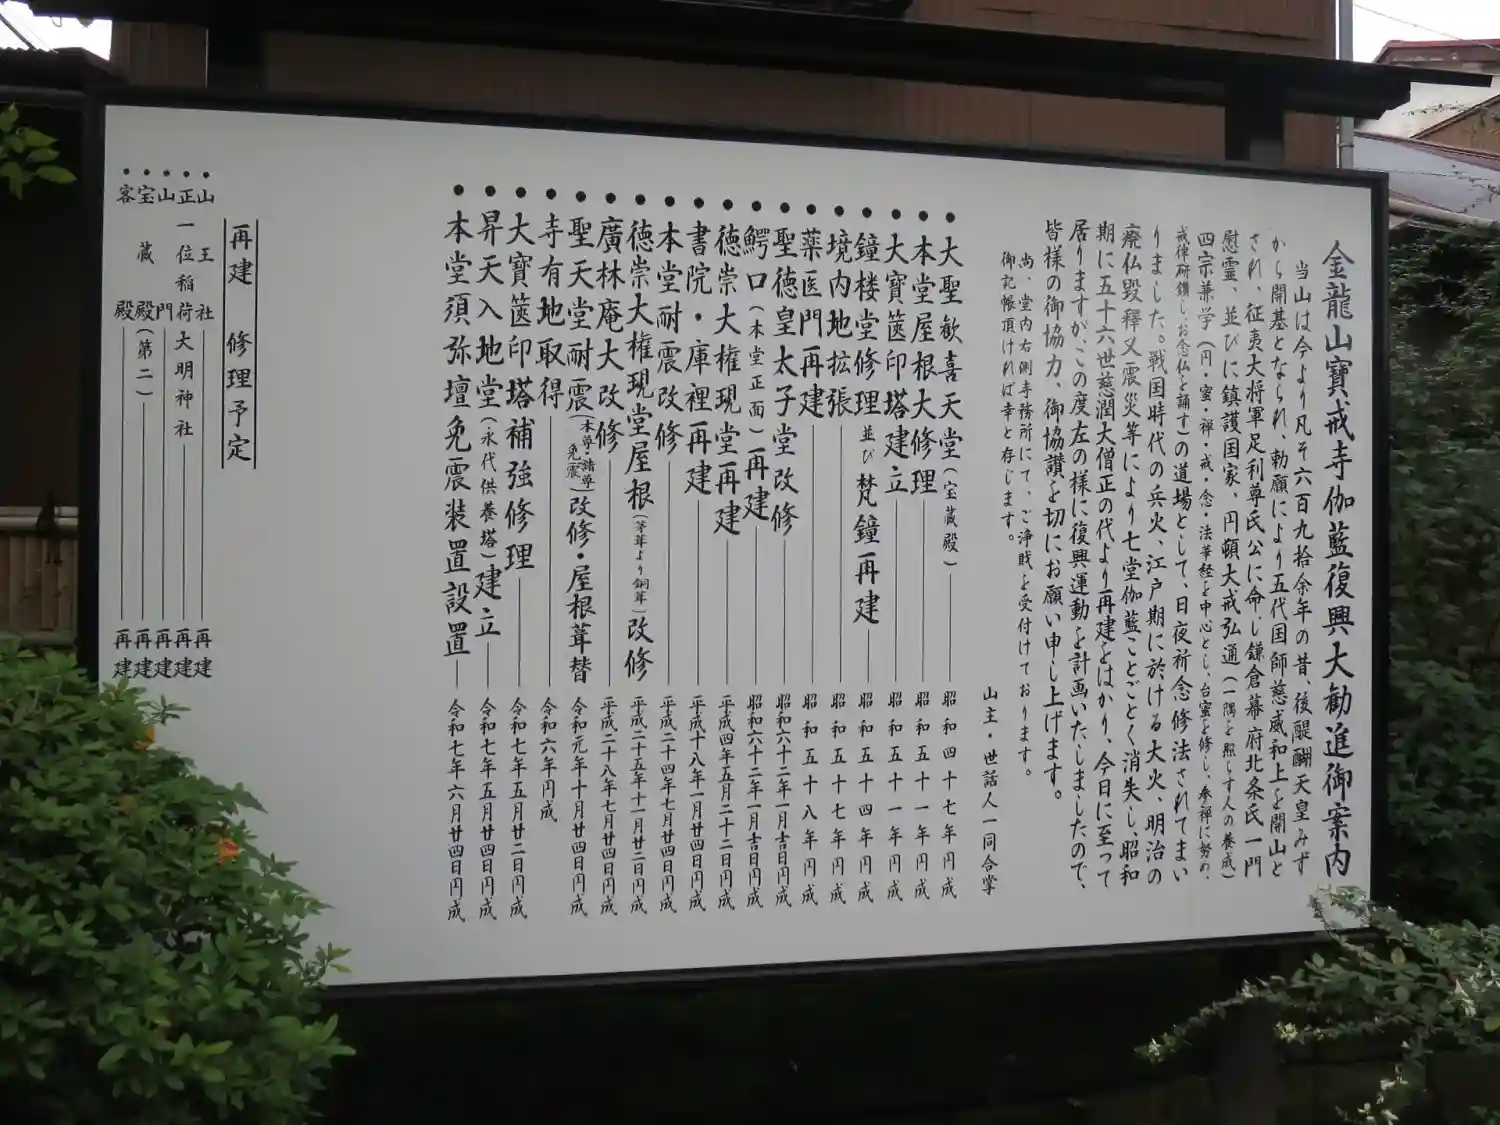 金龍山寶戒寺伽藍復興大勧進御案内
当山は今より凡そ六百九拾余年の昔、後醍醐天皇みず
から開基となられ、勅願により五代国師慈威和上を開山と
され、征夷大将軍足利尊氏公に命し鎌倉幕府北条氏一門
慰霊、並びに鎮護国家、円頓大戒弘通（一隅を照らす人の養成）
四宗兼学（円・蜜・禅・戒・念・法華経を中心とし、台蜜を修し、参禅に努め、
戒律研鑽しお念仏を誦す）の道場として、日夜祈念修法されてまい
りました。戦国時代の兵火、江戸期に於ける大火、明治の
廃仏毀釋又震災等により七堂伽藍ことごとく消失し、昭和
期に五十六世慈潤大僧正の代より再建をはかり、今日に至って
居りますが、この度左の様に復興運動を計画いたしましたので、
皆様の御協力、御協讃を切にお願い申し上げます。
尚、堂内右側寺務所にて、ご浄財を受付けております。
御記帳頂ければ幸と存じます。
山主・世話人一同合掌
●大聖歓喜天堂（宝蔵殿） 昭和四十七年円成
●本堂屋根大修理 昭和五十一年円成
●大寶篋印塔建立 昭和五十一年円成
●鐘楼堂修理並び梵鐘再建 昭和五十四年円成
●境内地拡張 昭和五十七年円成
●薬医門再建 昭和五十八年円成
●聖徳皇太子堂改修 昭和六十二年一月吉日円成
●鰐口（本堂正面）再建 昭和六十二年一月吉日円成
●徳崇大権現堂再建 平成四年五月二十二日円成
●書院・庫裡再建 平成十八年一月廿四日円成
●本堂耐震改修 平成二十四年七月廿四日円成
●徳崇大権現堂屋根（茅葺より銅葺）改修 平成二十五年十一月廿二日円成
●廣林庵大改修 平成二十八年七月廿四日円成
●聖天堂耐震（本尊・諸尊免震）改修・屋根葺替 令和元年十月廿四日円成
●寺有地取得 令和六年円成
●大寶篋印塔補強修理 令和七年五月廿二日円成
●昇天入地堂（永代供養塔）建立 令和七年五月廿四日円成
●本堂須弥壇免震装置設置 令和七年六月廿四日円成
再建 修理予定
・山王社 再建
・正一位稲荷大明神社 再建
・山門 再建
・宝蔵殿（第二） 再建
・客殿 再建